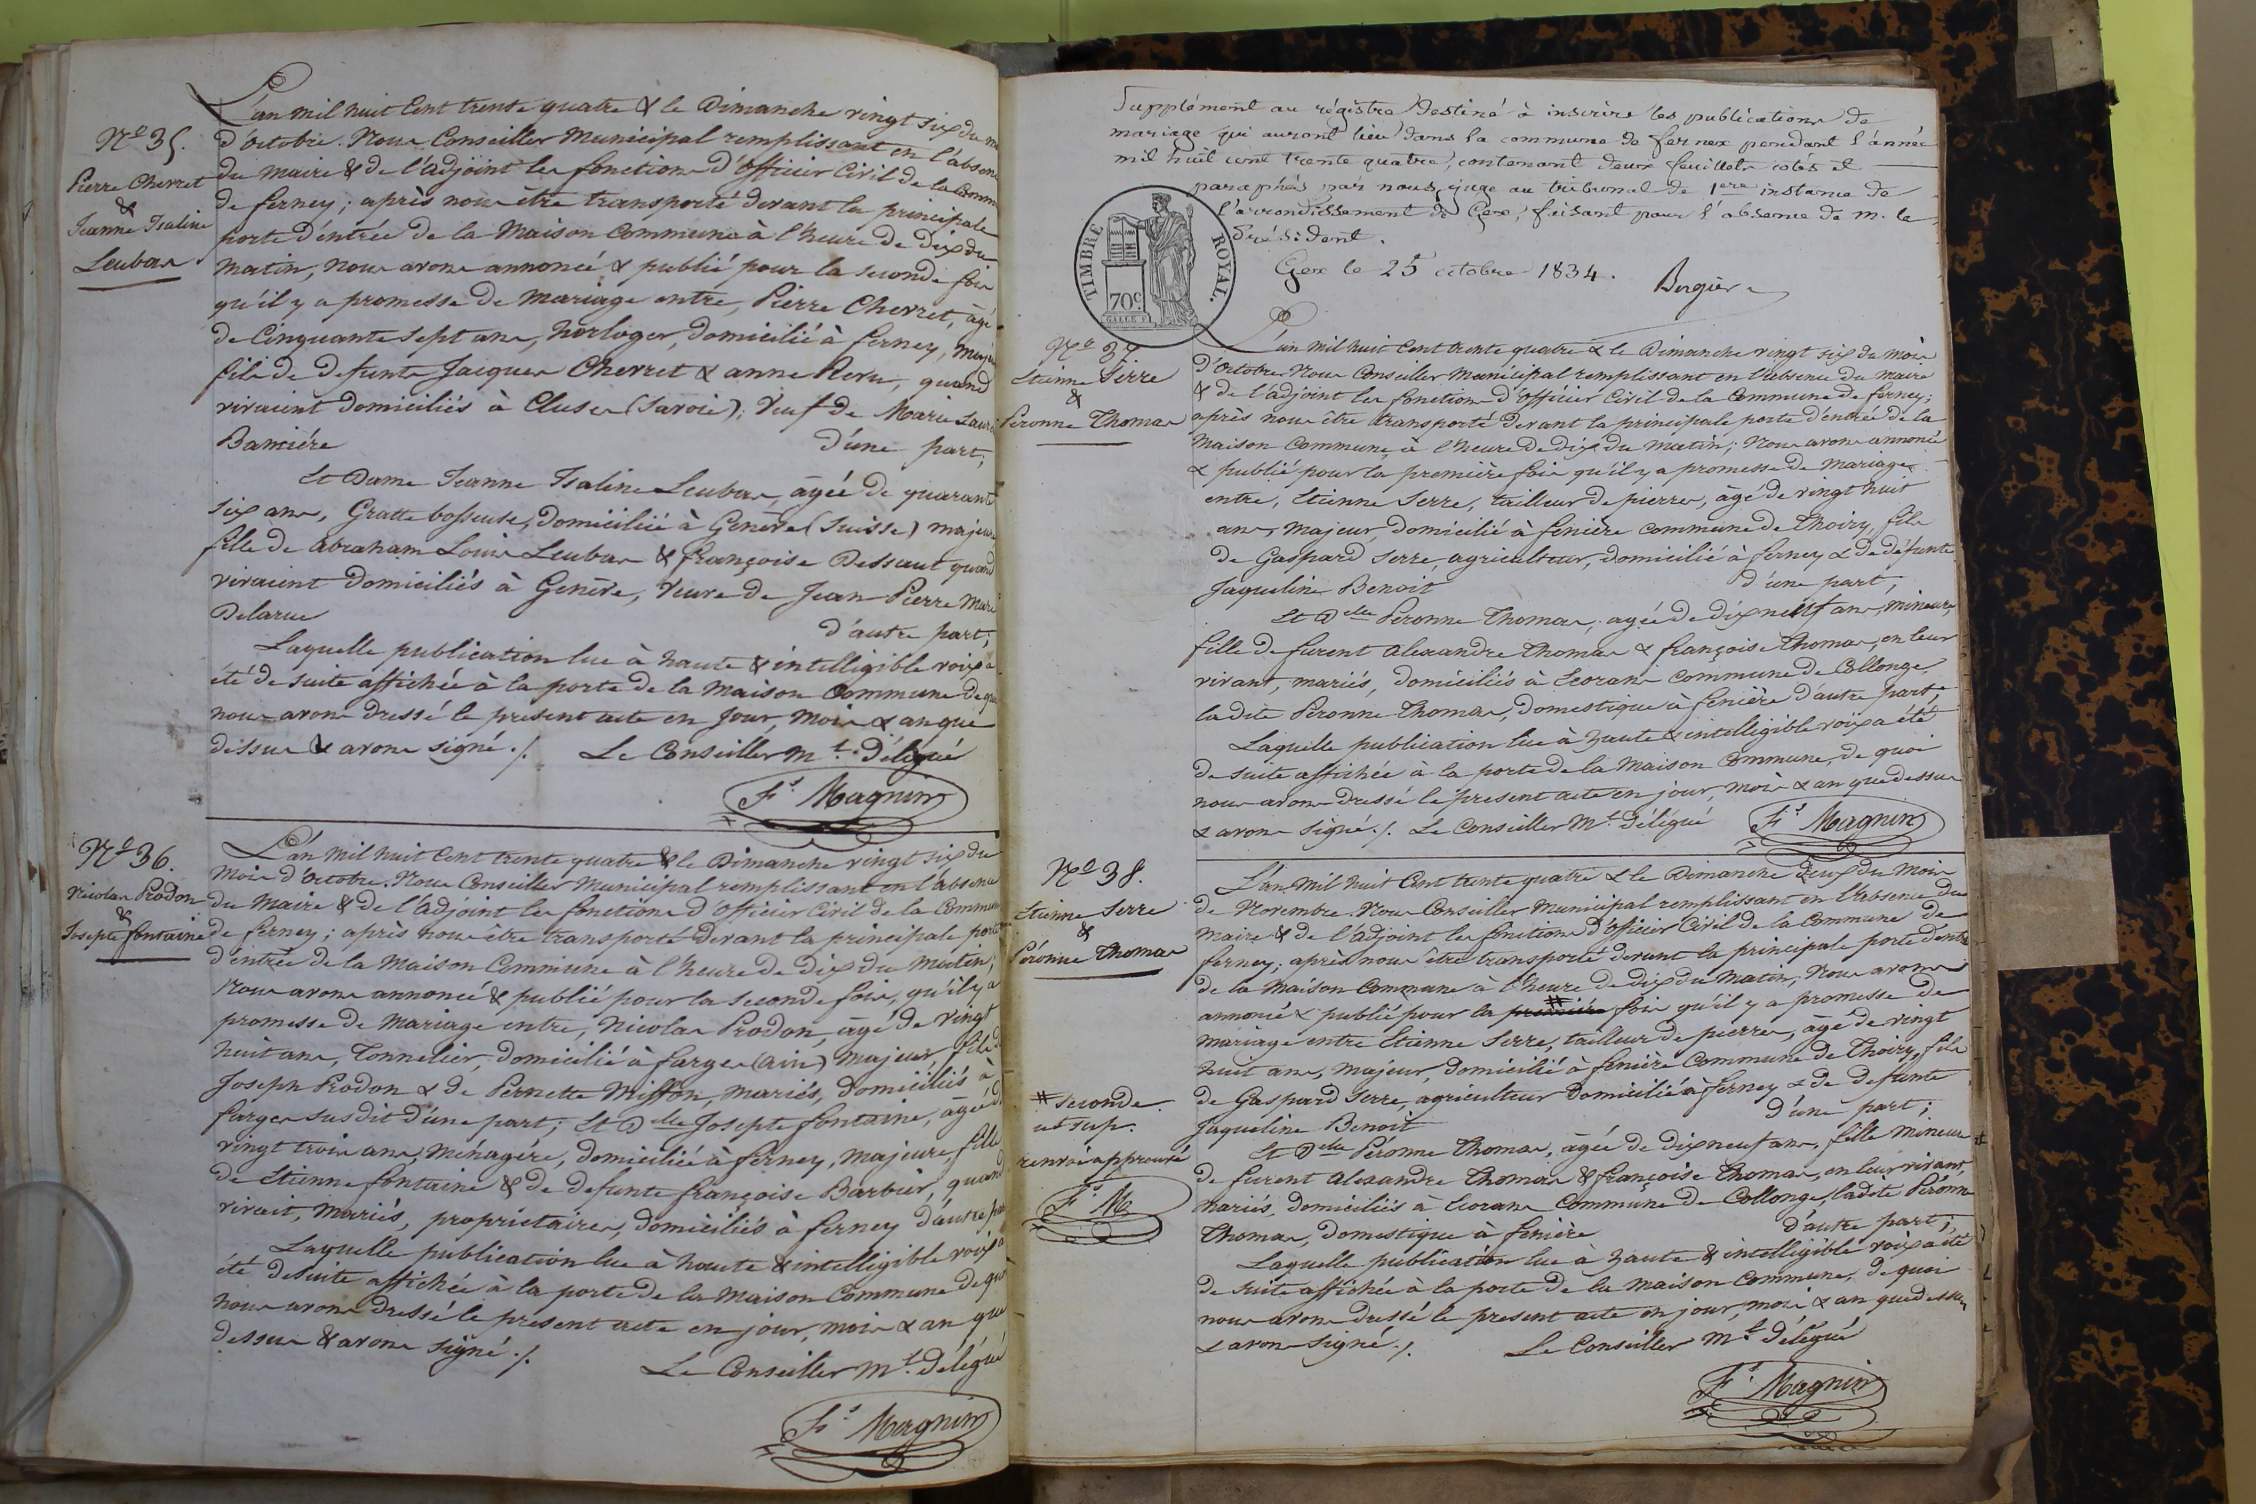 L'an mil huit Cent trente quatre & le Dimanche vingt six du
d'octobre. Nous Conseiller Municipal remplissant en l'absence
du maire & de l'adjoint les fonctions d'officier Civil de la Commune
de ferney ; après nous être transporté devant la principale
porte d'entrée de la Maison Commune à l'heure de dix du
matin, nous avons annoncé & publié pour la seconde fois
qu'il y a promesse de mariage entre, Pierre Cherret, âgé
de Cinquante sept ans, horloger, domicilié à ferney, majeur
fils de defunts Jacques Cherret & anne Revu, quand
vivaient domiciliés à Cluses (Savoie) ; Veuf de Marie
d'une part,
Et Dame Jeanne Isaline Leubas, âgée de quarante
six ans, Gratte bosseuse, domiciliée à Genève (Suisse) majeure
fille de abraham Louis Leubas & françoise Dessaut quand
vivaient domiciliés à Genève, Veuve de Jean Pierre
Delarue d'autre part ;
Laquelle publication lue à haute & intelligible voix a
été de suite affichée à la porte de la Maison Commune de quoi
nous avons dressé le present acte en jour, mois & an que
dessus & avons signé ./. Le Conseiller Mt. Délégué
Fs. Magnin
No 35.
Pierre Cherret
&
Jeanne Isaline
Leubas
No 36.
Nicolas Prodon
&
Josepte fontaine
L'an mil huit Cent trente quatre & le Dimanche vingt six du
mois d'octobre. Nous Conseiller Municipal remplissant en l'absence
du Maire & de l'adjoint les fonctions d'officier Civil de la Commune
de ferney ; après nous être transporté devant la principale porte
d'entrée de la Maison Commune à l'heure de dix du matin ;
Nous avons annoncé & publié pour la seconde fois, qu'il y a
promesse de mariage entre, Nicolas Prodon, âgé de vingt
huit ans, Tonnelier, domicilié à farges (ain) majeur, fils de
Joseph Prodon & de Pernette Miffon, mariés, domiciliés à
farges susdit d'une part ; Et Dlle Josepte fontaine, âgée de
vingt trois ans, Ménagére, domiciliée à ferney, majeure, fille
de Etienne fontaine & de defunte françoise Barbier, quand
vivait, mariés, proprietaires, domiciliés à ferney d'autre part
Laquelle publication lue à haute & intelligible voix a
été de suite affichée à la porte de la Maison Commune de quoi
nous avons dressé le present acte en jour, mois & an que
dessus & avons signé ./.
Le Conseiller Mt. Délégué
Fs. Magnin
Supplément au régistre destiné à inscrire les publications de
mariage qui auront lieu dans la commune de fernex pendant l'année
mil huit cent trente quatre, contenant deux feuillets cotés et
paraphés par nous, juge au tribunal de 1ere instance de
l'arrondissement de Gex, faisant pour l'absence de m. le
Président.
Gex le 25 octobre 1834.
Bergier
TIMBRE ROYAL.
70c.
No 37
Etienne Serre
&
Péronne Thomas
L'an Mil huit Cent trente quatre & le Dimanche vingt six du mois
d'octobre. Nous Conseiller Municipal remplissant en l'absence du maire
& de l'adjoint les fonctions d'officier Civil de la Commune de ferney ;
après nous être transporté devant la principale porte d'entrée de la
Maison Commune, à l'heure de dix du matin ; Nous avons annoncé
& publié pour la première fois qu'il y a promesse de Mariage
entre, Etienne Serre, tailleur de pierres, âgé de vingt huit
ans, majeur, domicilié à fenière commune de Thoiry, fils
de Gaspard Serre, agriculteur, domicilié à ferney & de défunte
Jaqueline Benoit d'une part,
Et Dlle Péronne Thomas, agée de dix neuf ans, mineure,
fille de furent Alexandre Thomas & françoise Thomas, en leur
vivant, mariés, domiciliés à Ecorans commune de Collonge,
ladite Péronne Thomas, domestique à fenière d'autre part ;
Laquelle publication lue à haute & intelligible voix a été
de suite affichée à la porte de la Maison Commune, de quoi
nous avons dressé le present acte en jour, mois & an que dessus
& avons signé ./. Le Conseiller Mt. Délégué Fs. Magnin
No 38.
Etienne Serre
&
Péronne Thomas
L'an Mil huit Cent trente quatre & le Dimanche deux du Mois
de Novembre. Nous Conseiller Municipal remplissant en l'absence du
Maire & de l'adjoint les fonctions d'officier Civil de la Commune de
ferney ; après nous être transporté devant la principale porte d'entrée
de la Maison Commune à l'heure de dix du Matin, Nous avons
annoncé & publié pour la première # fois qu'il y a promesse de
mariage entre Etienne Serre, tailleur de pierres, âgé de vingt
huit ans, majeur, domicilié à fenière Commune de Thoiry, fils
de Gaspard Serre, agriculteur domicilié à ferney & de defunte
Jaqueline Benoit d'une part ;
Et Dlle Péronne Thomas, âgée de dix neuf ans, fille mineure
de furent Alexandre Thomas & françoise Thomas, en leur vivant,
mariés, domiciliés à Ecorans Commune de Collonge, ladite Péronne
Thomas, domestique à fenière d'autre part ;
Laquelle publication lue à haute & intelligible voix a été
de suite affichée à la porte de la Maison Commune, de quoi
nous avons dressé le present acte en jour, mois & an que dessus
& avons signé ./. Le Conseiller Mt. Délégué
Fs. Magnin
# seconde
ut sup.
renvoi approuvé
Fs. M